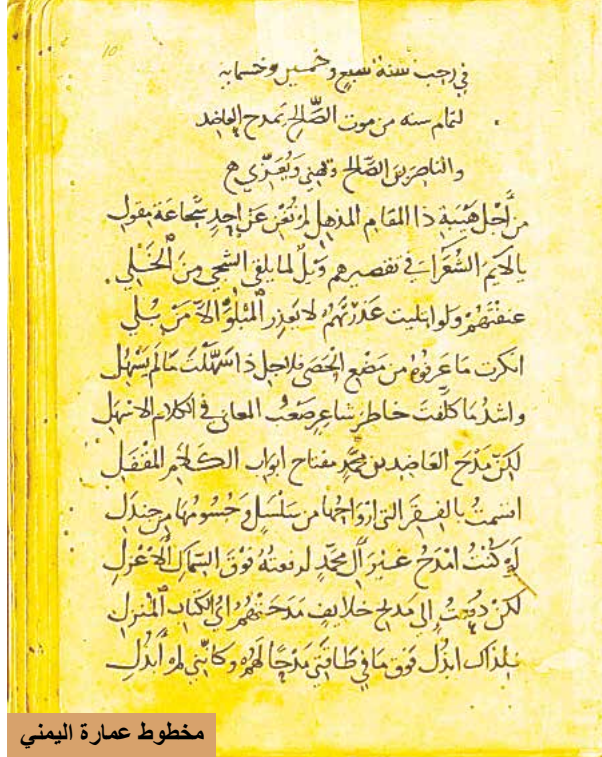 10
في رجب سنة سبع وخمسين وخمسمايه
لتمام سنه من موت الصالح يمدح العاضد
والناصر بن الصالح ويهني ويعزي هم
من أجل هيبة ذا المقام المذهل لم تغن عن احد شجاعة مقول
يا لايم الشعرا في تقصيرهم ويل لما يلقى الشجي من الخلي
عنفتهم ولو ابتليت عذرتهم لا يعذر المبلو الا من بلي
انكرت ما عرفوه من مضغ الحصى فلاجل ذا سهلت ما لم يسهل
واشد ما كلفت خاطر شاعر صعب المعاني في الكلام الاسهل
لكن مدح العاضد بن محمد مفتاح ابواب الكلام المقفل
بالفقر التي ازواجها من سلسل وجسومها من جندل
لو كنت امدح غير آل محمد لرفعته فوق السماك الاعزل
لكن دفعت الى مديح خلايف مدحتهم اي الكتاب المنزل
فلذاك ابذل فوق ما في طاقتي مدحا لهم وكانني لم أبذل
مخطوط عمارة اليمني